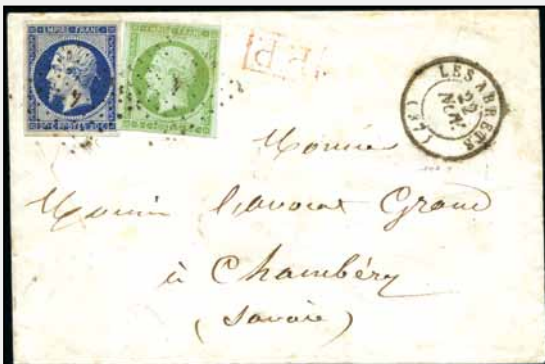 EMPIRE FRANC.
EMPIRE FRANC.
P.P.
LES ABRETS
22
NOV.
(37)
Monsieur
Monsieur l'avocat Grand
à Chambéry
(Savoie)